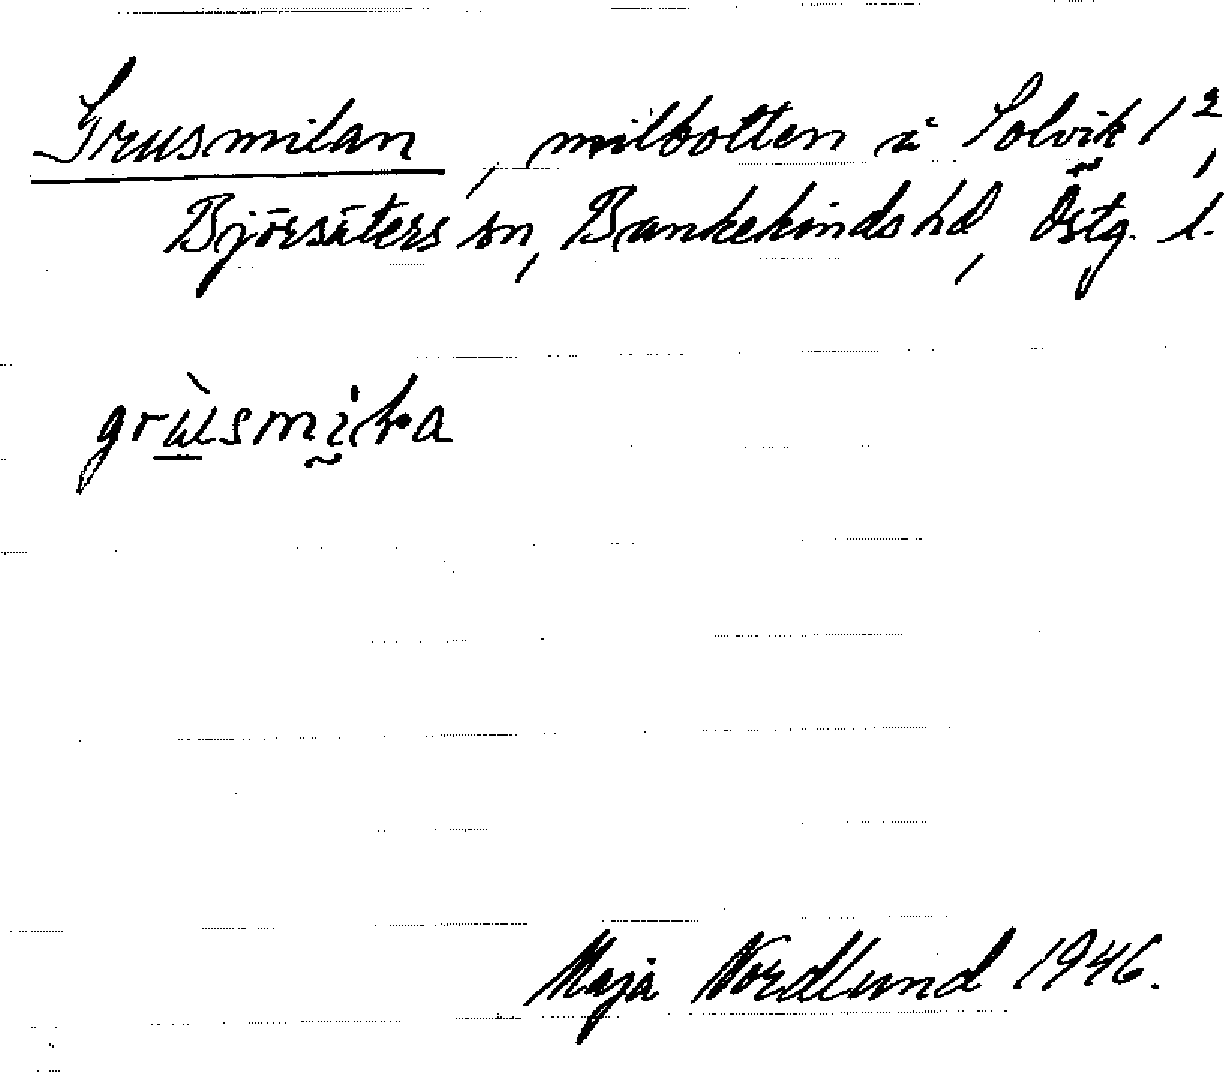 Grusmilan, milbotten å Solvik 1²,
Björsäters sn, Bankekinds hd, Östg. l.
grùsmḭḷa
Maja Nordlund 1946.